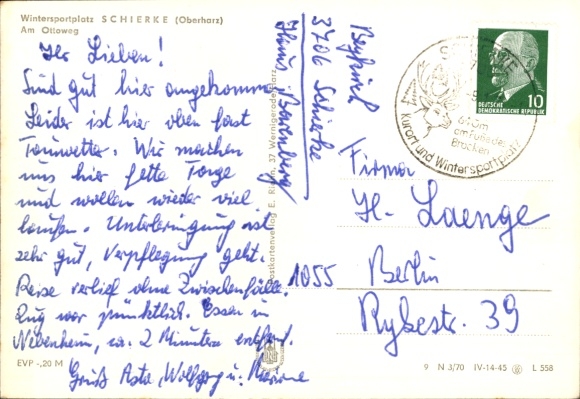 Wintersportplatz SCHIERKE (Oberharz)
Am Ottoweg
Ihr Lieben!
Sind gut hier angekommen
Leider ist hier oben fast
Tauwetter. Wir machen
uns hier fette Tage
und wollen wieder viel
laufen. Unterbringung ist
sehr gut, Verpflegung geht.
Reise verlief ohne Zwischenfälle.
Zug war pünktlich. Essen in
Nebenheim, ca. 2 Minuten entfernt.
Gruß Asta, Wolfgang u.
EVP -,20 M
Postkartenverlag E. 37 Wernigerode/Harz
3706 Schierke
Haus
SCHIERKE
640m
am Fuße des
Brocken
Kurort und Wintersportplatz
DEUTSCHE
DEMOKRATISCHE REPUBLIK
10
Firma
H. Laenge
1055 Berlin
Rykestr. 39
9 N 3/70 IV-14-45 L 558